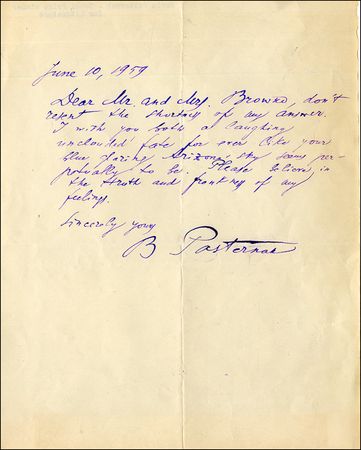 June 10, 1959
Dear Mr. and Mrs. Browko, don't
resent the shortness of any answer.
I wish you both a laughing
unclouded fate for ever like your
blue Arizona's sky seems per-
petually to be. Please believe in
the truth and frankness of any
feelings.
Sincerely yours
B Pasternak